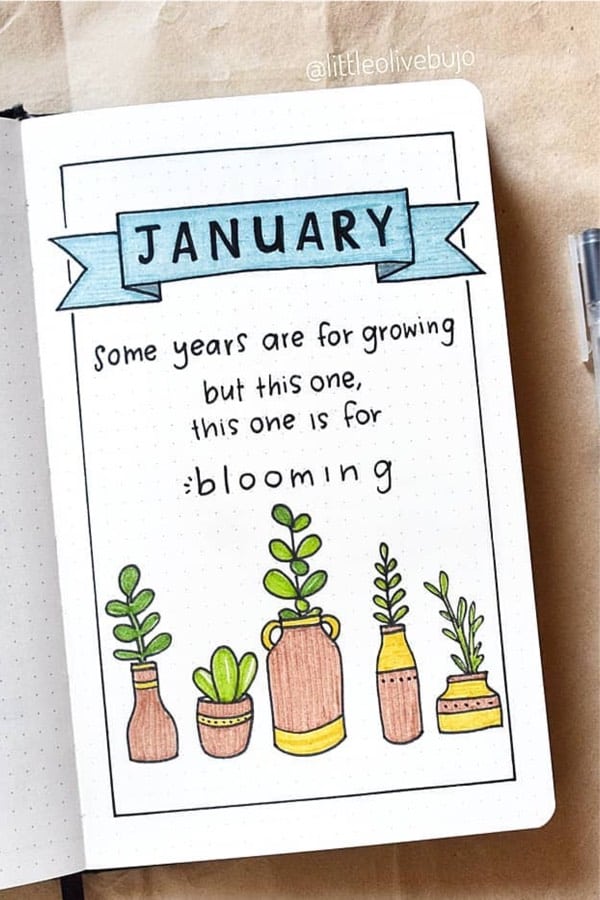 @littleolivebujo
JANUARY
Some years are for growing
but this one,
this one is for
blooming